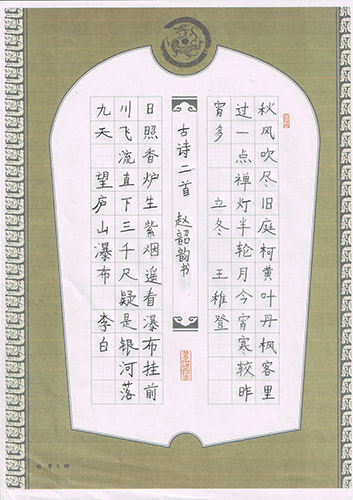 秋风吹尽旧庭柯黄叶丹枫客里
过一点禅灯半轮月今宵寒较昨
宵多 立冬 王稚登
古诗二首 赵韶韵书
日照香炉生紫烟遥看瀑布挂前
川飞流直下三千尺疑是银河落
九天 望庐山瀑布 李白